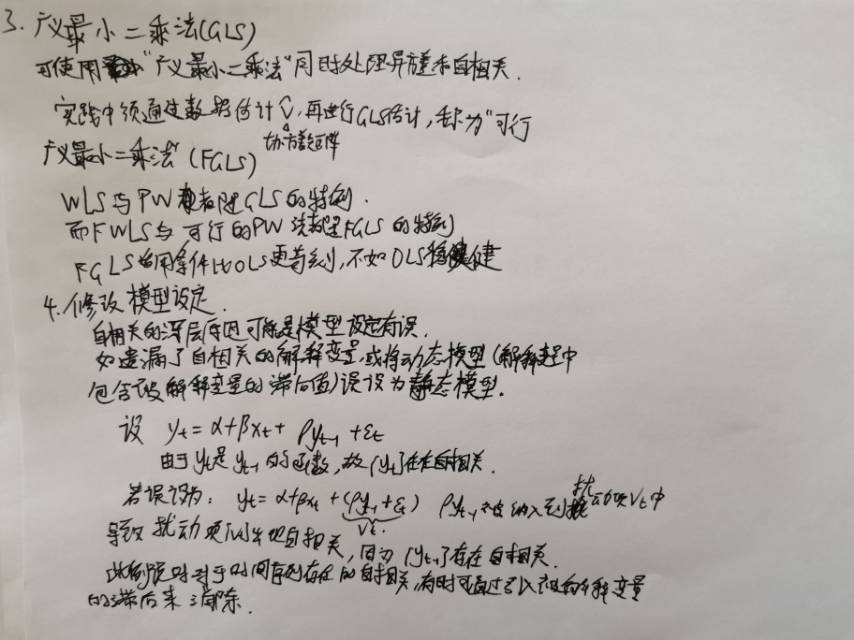 3. 广义最小二乘法(GLS)
可使用"广义最小二乘法"同时处理异方差和自相关.
实践中须通过数据估计V̂, 再进行GLS估计, 称为"可行
协方差矩阵
广义最小二乘法"(FGLS)
WLS与PW都是GLS的特例.
而FWLS与可行的PW法都是FGLS的特例
FGLS的适用条件比OLS更苛刻, 不如OLS稳健
4. 修改模型设定.
自相关的深层原因可能是模型设定有误.
如遗漏了自相关的解释变量, 或将动态模型(解释变量中
包含被解释变量的滞后值)误设为静态模型.
设 yt = α+βxt + ρyt-1 + εt
由于yt是yt-1的函数, 故{yt}存在自相关.
若误设为: yt = α+βxt + (ρyt-1 + εt) ρyt-1被纳入到扰动项Vt中
Vt
导致扰动项{Vt}出现自相关, 因为{yt-1}存在自相关.
此例说明对于时间序列存在的自相关, 有时可通过引入被解释变量
的滞后来消除.